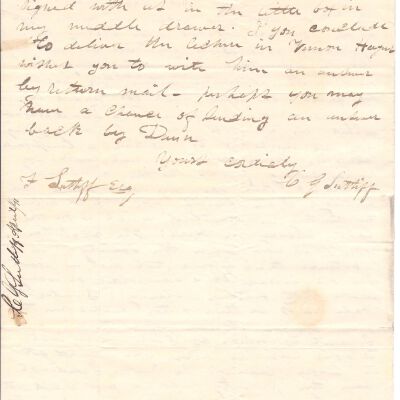 signed with us in the little box in
my middle drawer. If you conclude
to deliver the lecture in Union Hayes
wishes you to write him an answer
by return mail - perhaps you may
have a chance of sending an answer
back by Dunn
Yours entirely
F Sutliff Esq
C G Sutliff